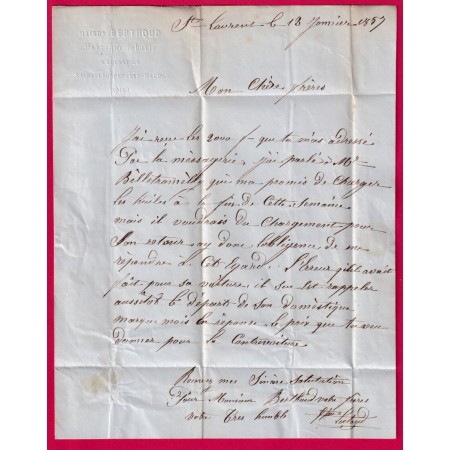 BERTHOUD
St Laurent le 18 Janvier 1857
Mon Chère frères
J'ai recue les 2000 f que tu m'as adressé
Par la messagerie, j'ai parlé à Mr
que ma promis de Charger
les huiles à la fin de Cette Semaine
mais il voudrais du Chargement pour
Son retour ay donc l'obligence de me
répondre à Cet Egard.
fait pour sa voiture il Sen est rappeler
aussitôt le départ de Son domèstique
marque mois la réponse le prix que tu veu
donner pour la Contrevoiture
Recevez mes Sincère Salutation
Pour Monsieur Berthoud votre frères
votre très humble